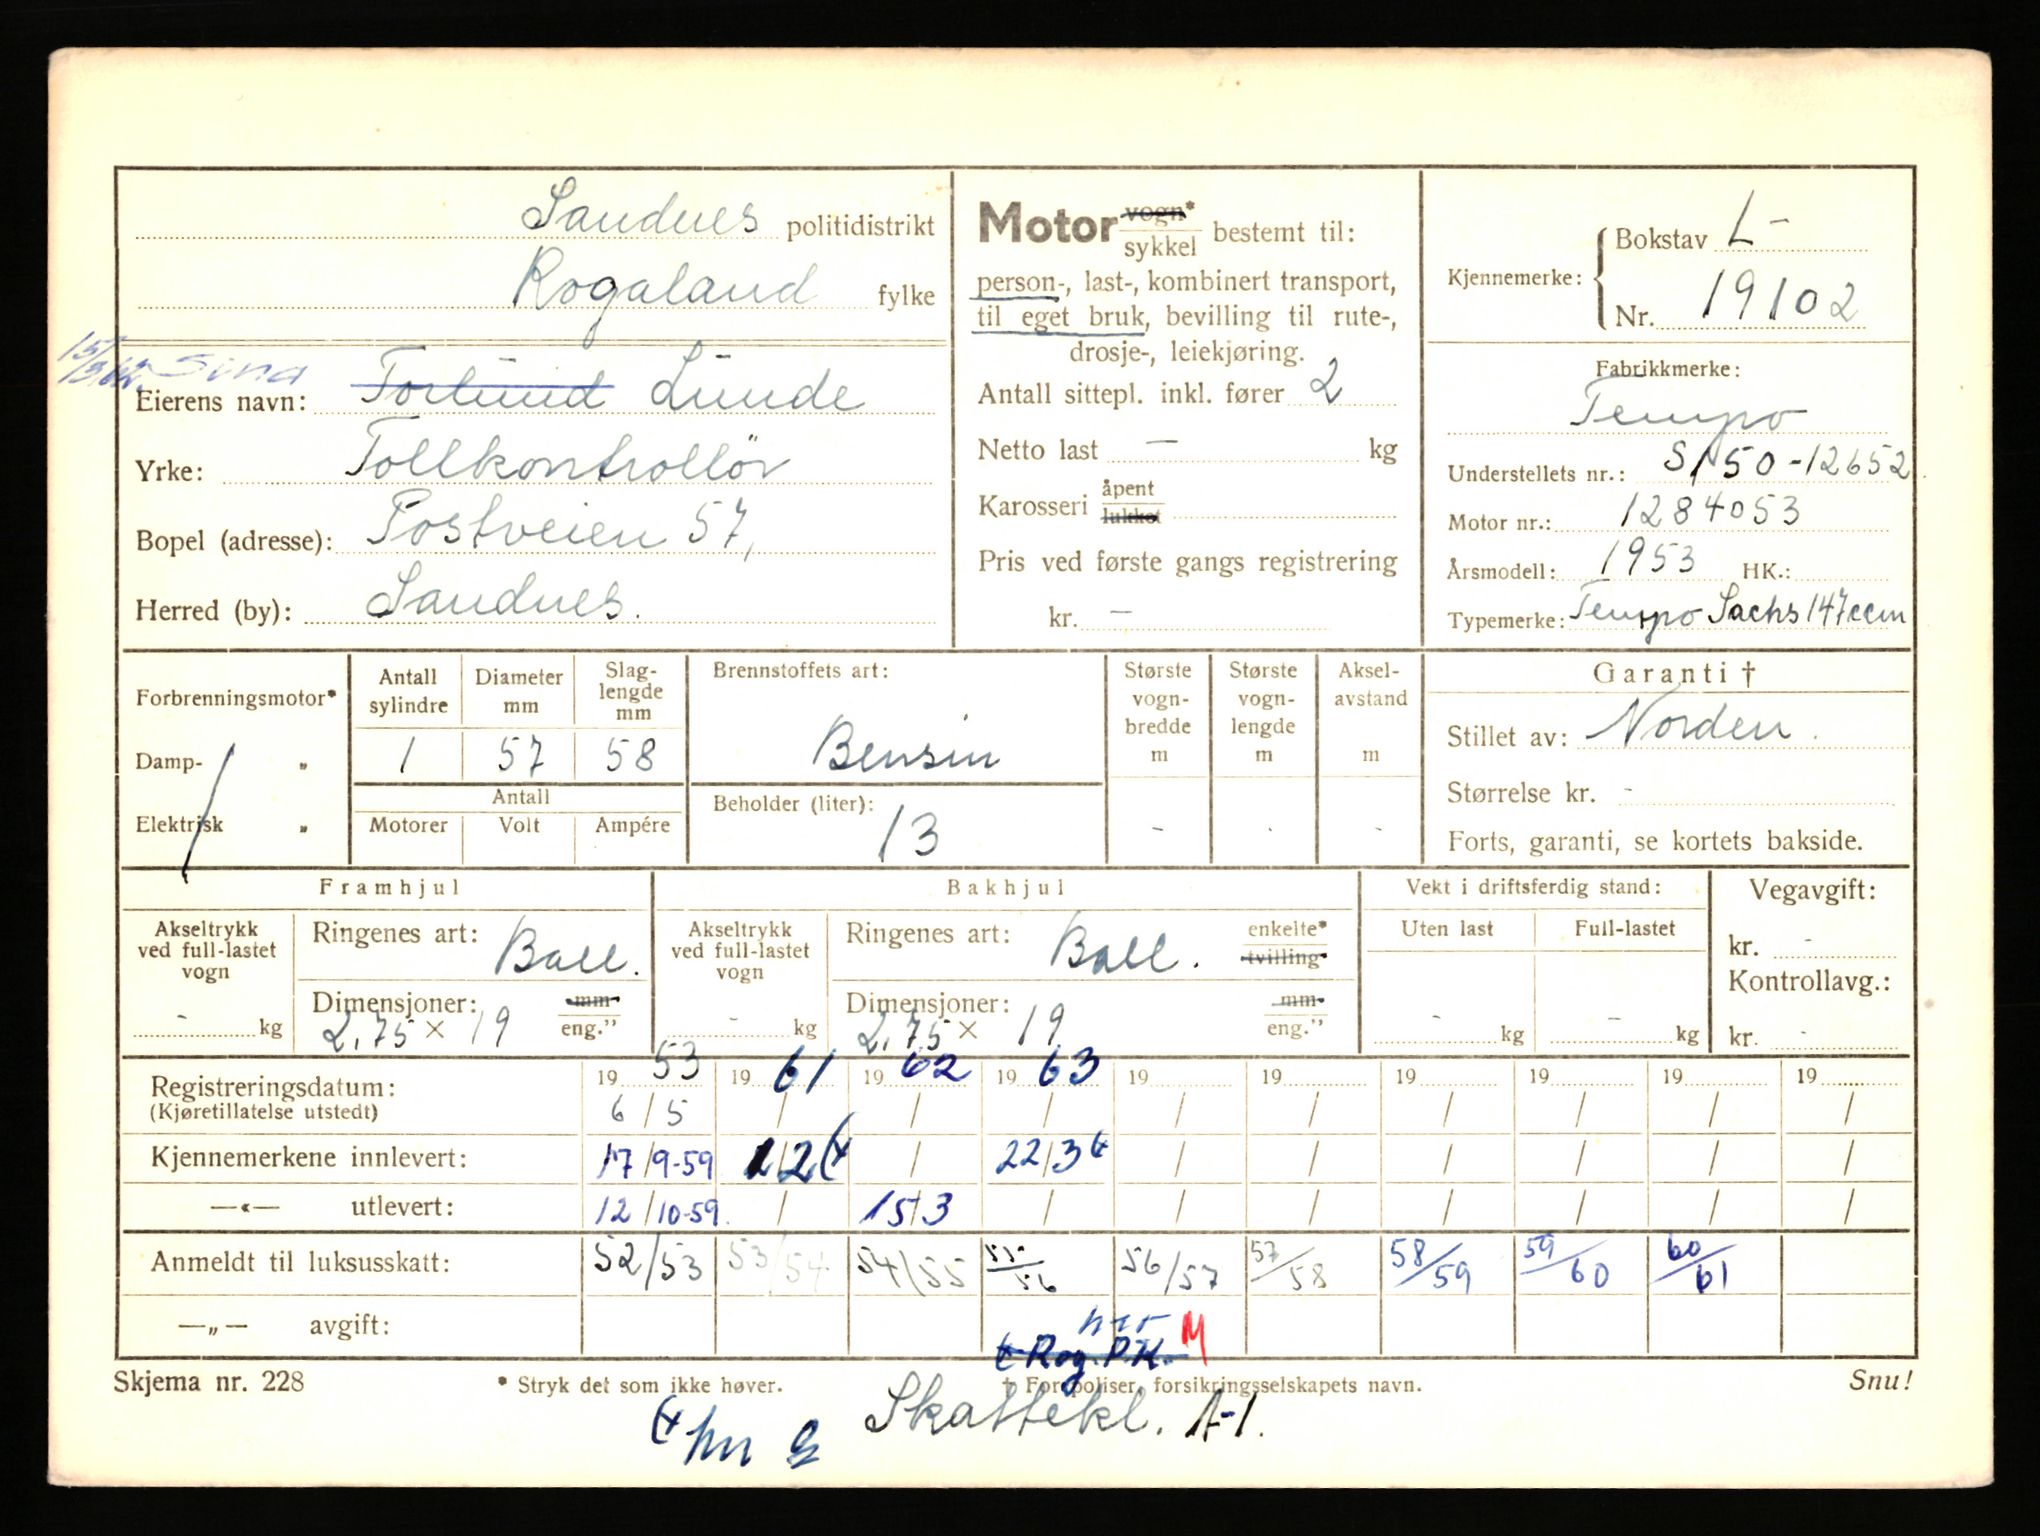 Sandnes politidistrikt
Rogaland fylke
Motor vogn* sykkel bestemt til:
person-, last-, kombinert transport,
til eget bruk, bevilling til rute-,
drosje-, leiekjøring.
Antall sittepl. inkl. fører 2
Netto last — kg
Karosseri åpent lukket
Pris ved første gangs registrering
kr. —
Kjennemerke: Bokstav L-
Nr. 19102
Fabrikkmerke:
Tempo
Understellets nr.: S/150-12652
Motor nr.: 1284053
Årsmodell: 1953 HK.:
Typemerke: Tempo Sachs 147ccm
15/3 Sina
Eierens navn: Torlund Lunde
Yrke: Tollkontrollör
Bopel (adresse): Postveien 57,
Herred (by): Sandnes.
Forbrenningsmotor*
Damp- „
Elektrisk „
Antall sylindre Diameter mm Slag-lengde mm
1 57 58
Antall
Motorer Volt Ampére
Brennstoffets art:
Bensin
Beholder (liter):
13
Største vogn-bredde m -
Største vogn-lengde m -
Aksel-avstand m -
Garanti †
Stillet av: Norden.
Størrelse kr. -
Forts, garanti, se kortets bakside.
Framhjul
Akseltrykk ved full-lastet vogn
- kg
Ringenes art: Ball.
Dimensjoner: mm
2,75 × 19 eng."
Bakhjul
Akseltrykk ved full-lastet vogn
- kg
Ringenes art: Ball. enkelte* tvilling*
Dimensjoner: mm
2,75 × 19 eng."
Vekt i driftsferdig stand:
Uten last Full-lastet
- kg - kg
Vegavgift:
kr. -
Kontrollavg.:
kr. -
Registreringsdatum: 1953 1961 1962 1963 19 19 19 19 19 19
(Kjøretillatelse utstedt) 6/5 / / / / / / / / /
Kjennemerkene innlevert: 17/9-59 / 22/3 / / / / / /
—«— utlevert: 12/10-59 / 15/3 / / / / / / /
Anmeldt til luksusskatt: 52/53 53/54 54/55 55/56 56/57 57/58 58/59 59/60 60/61
—„— avgift:
Rog. P.K. M
Skjema nr. 228 * Stryk det som ikke høver. † For poliser, forsikringsselskapets navn. Snu!
Skattekl. A-1.